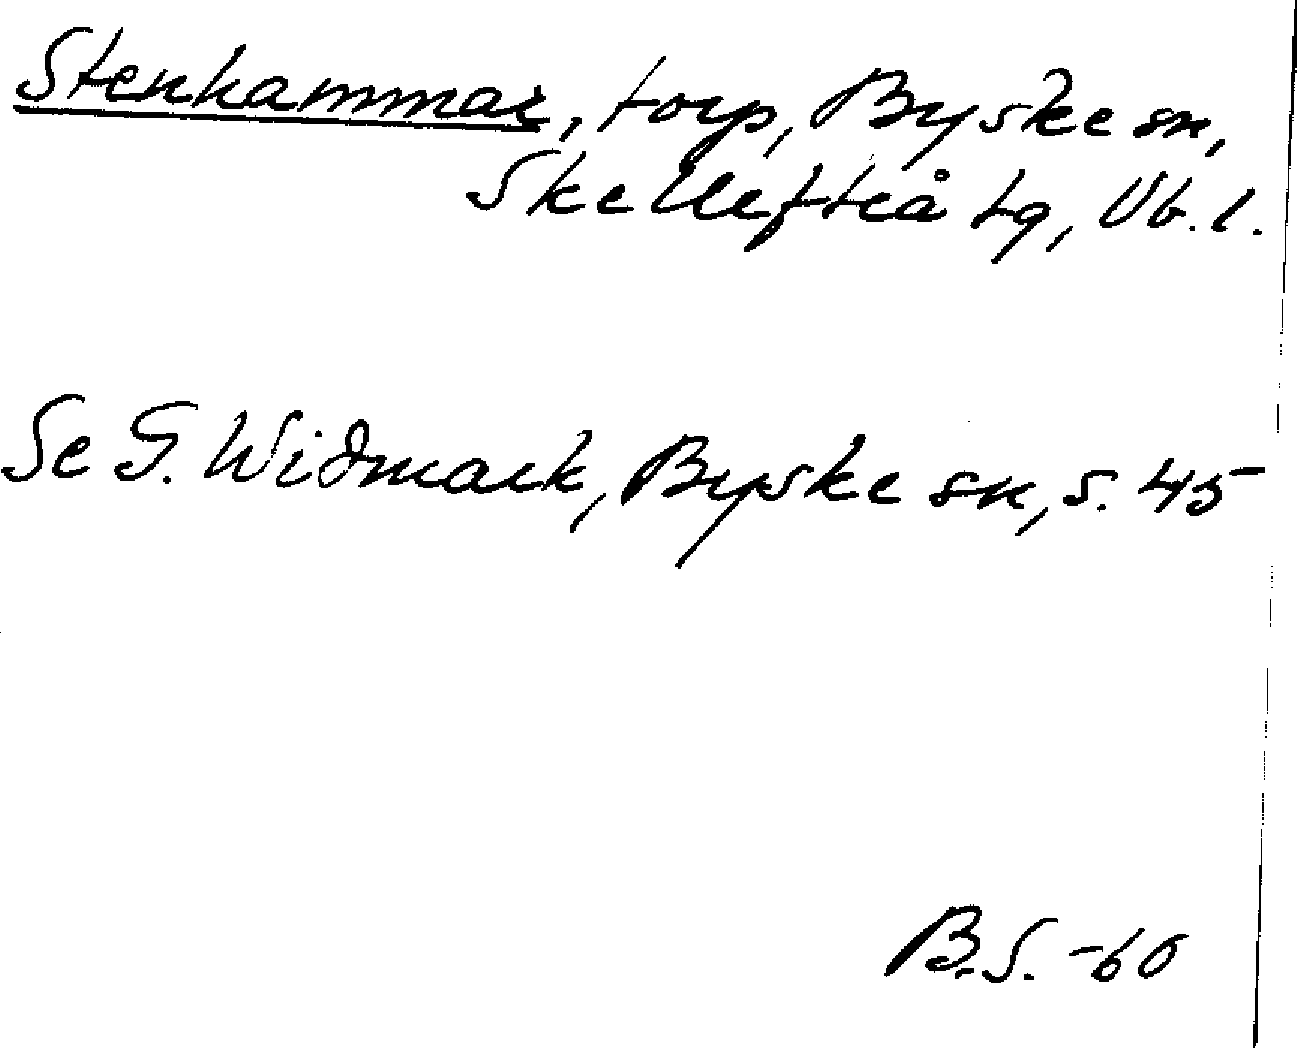 Stenhammar, torp, Byske sn,
Skellefteå tg, Vb. l.
Se G. Widmark, Byske sn, s. 45
B.S. -60